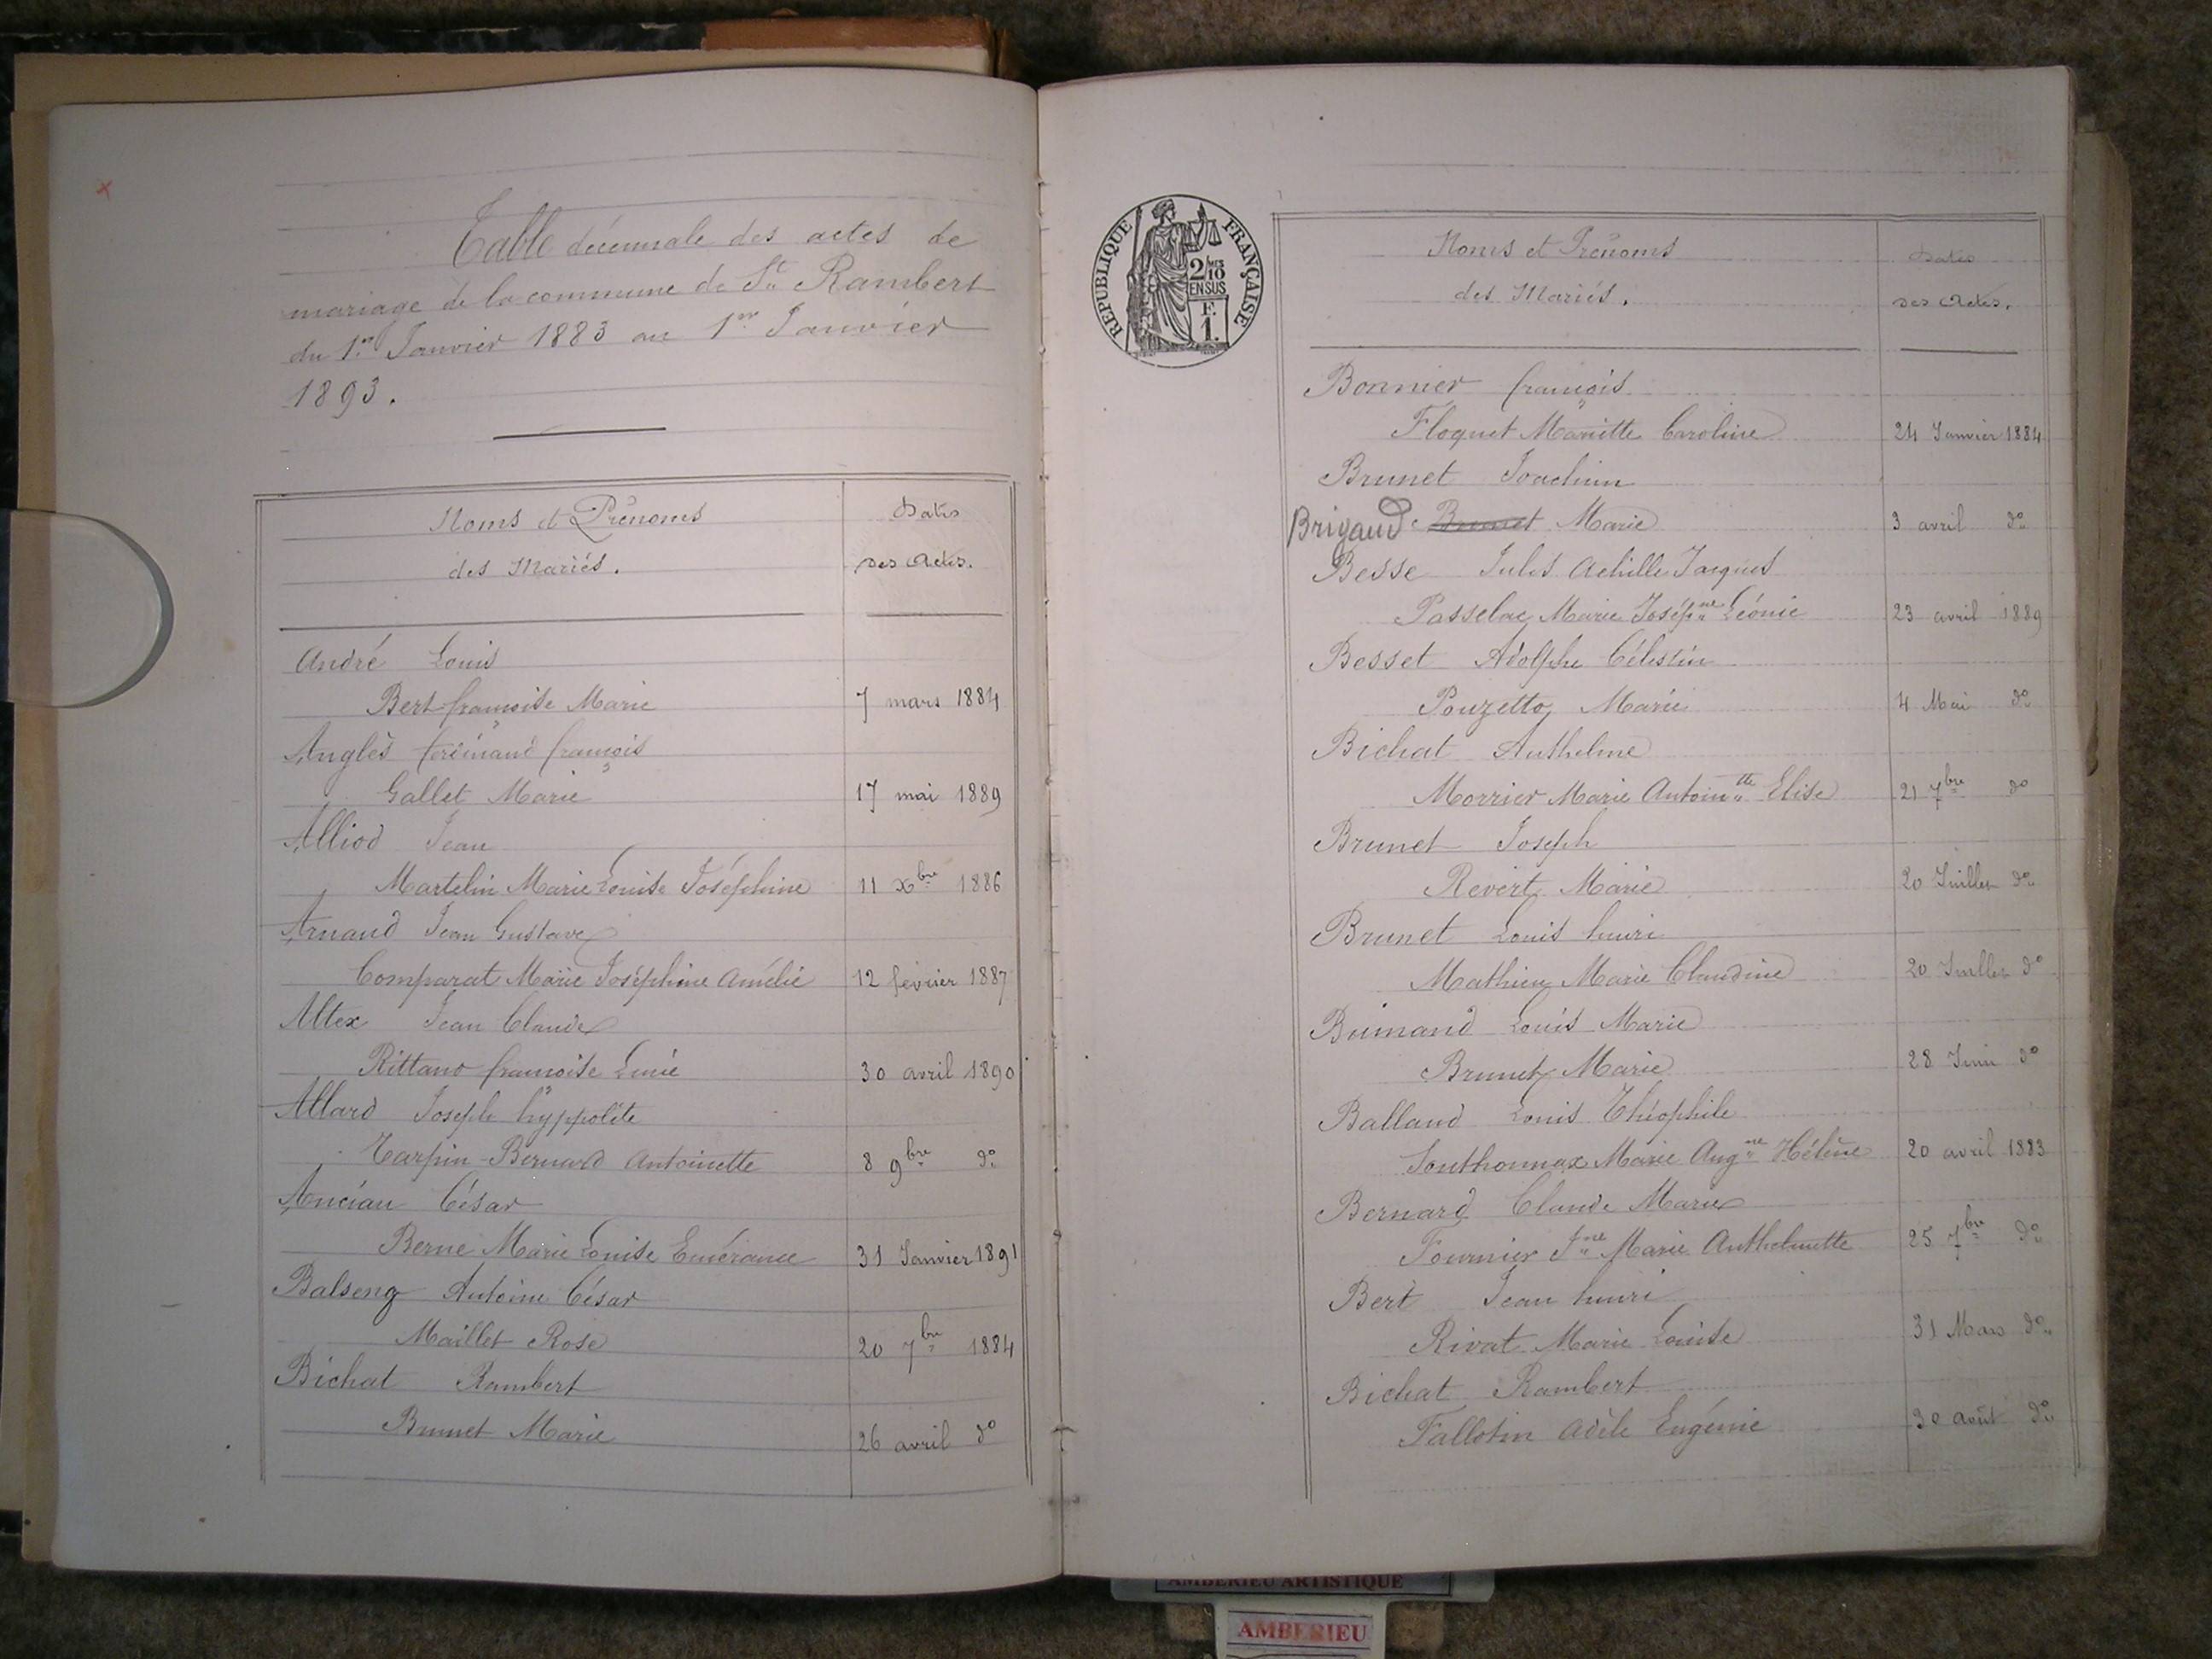 Table décennale des actes de
mariage de la commune de St Rambert
du 1er Janvier 1883 au 1er Janvier
1893.
Noms et Prénoms
des Mariés.
Dates
des Actes.
André Louis
Bert françoise Marie 7 mars 1884
Anglès ferdinand françois
Gallet Marie 17 mai 1889
Alliod Jean
Martelin Marie Louise Joséphine 11 Xbre 1886
Arnaud Jean Gustave
Comparat Marie Joséphine Amélie 12 février 1887
Altex Jean Claude
Rittano françoise Lucie 30 avril 1890
Allard Joseph hyppolite
Tarpin-Bernard Antoinette 8 9bre do
Anciau César
Berne Marie Louise Emérance 31 Janvier 1891
Balseng Antoine César
Maillet Rose 20 7bre 1884
Bichat Rambert
Brunet Marie 26 avril do
REPUBLIQUE FRANÇAISE
2/10MES
EN SUS
F.
1.
Noms et Prénoms
des Mariés.
Dates
des Actes.
Bonnier françois
Floquet Mariette Caroline 24 Janvier 1884
Brunet Joachim
Brigaud Brunet Marie 3 avril do
Besse Jules Achille Jacques
Passelac Marie Joséphne Léonie 23 avril 1889
Besset Adolphe Célestin
Pouzetto Marie 4 Mai do
Bichat Anthelme
Morrier Marie Antointte Elise 21 7bre do
Brunet Joseph
Revert Marie 20 Juillet do
Brunet Louis henri
Mathieu Marie Claudine 20 Juillet do
Bumand Louis Marie
Brunet Marie 28 Juin do
Balland Louis Théophile
Southonnax Marie Augne Hélène 20 avril 1883
Bernard Claude Marie
Fournier Jne Marie Anthelmette 25 7bre do
Bert Jean henri
Rivat Marie Louise 31 Mars do
Bichat Rambert
Fallotin Adèle Eugénie 30 août do
AMBERIEU ARTISTIQUE
AMBERIEU